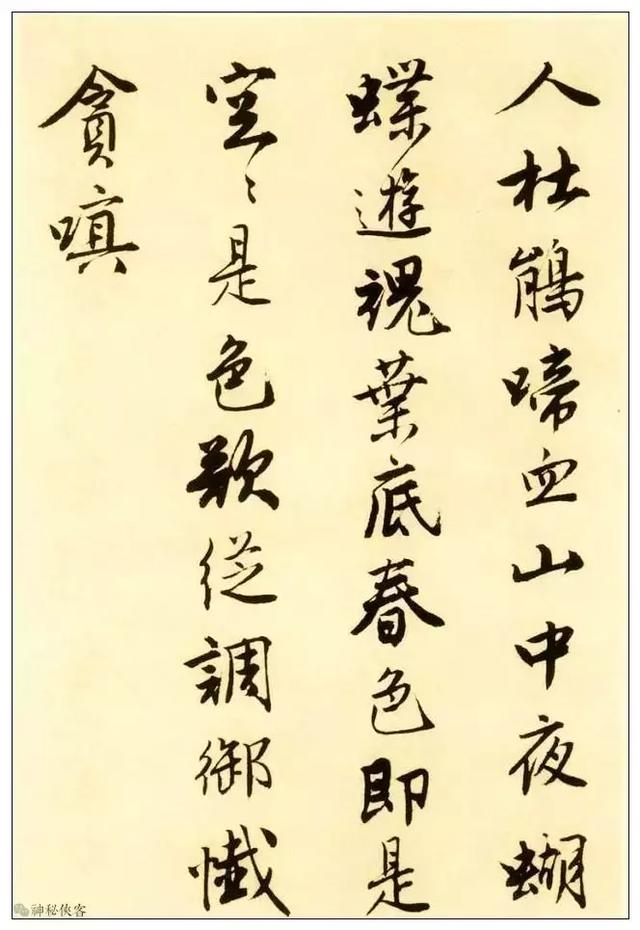 人杜鵑啼血山中夜蝴
蝶遊魂葉底春色即是
空〻是色欲從調御懺
貪嗔
神秘俠客